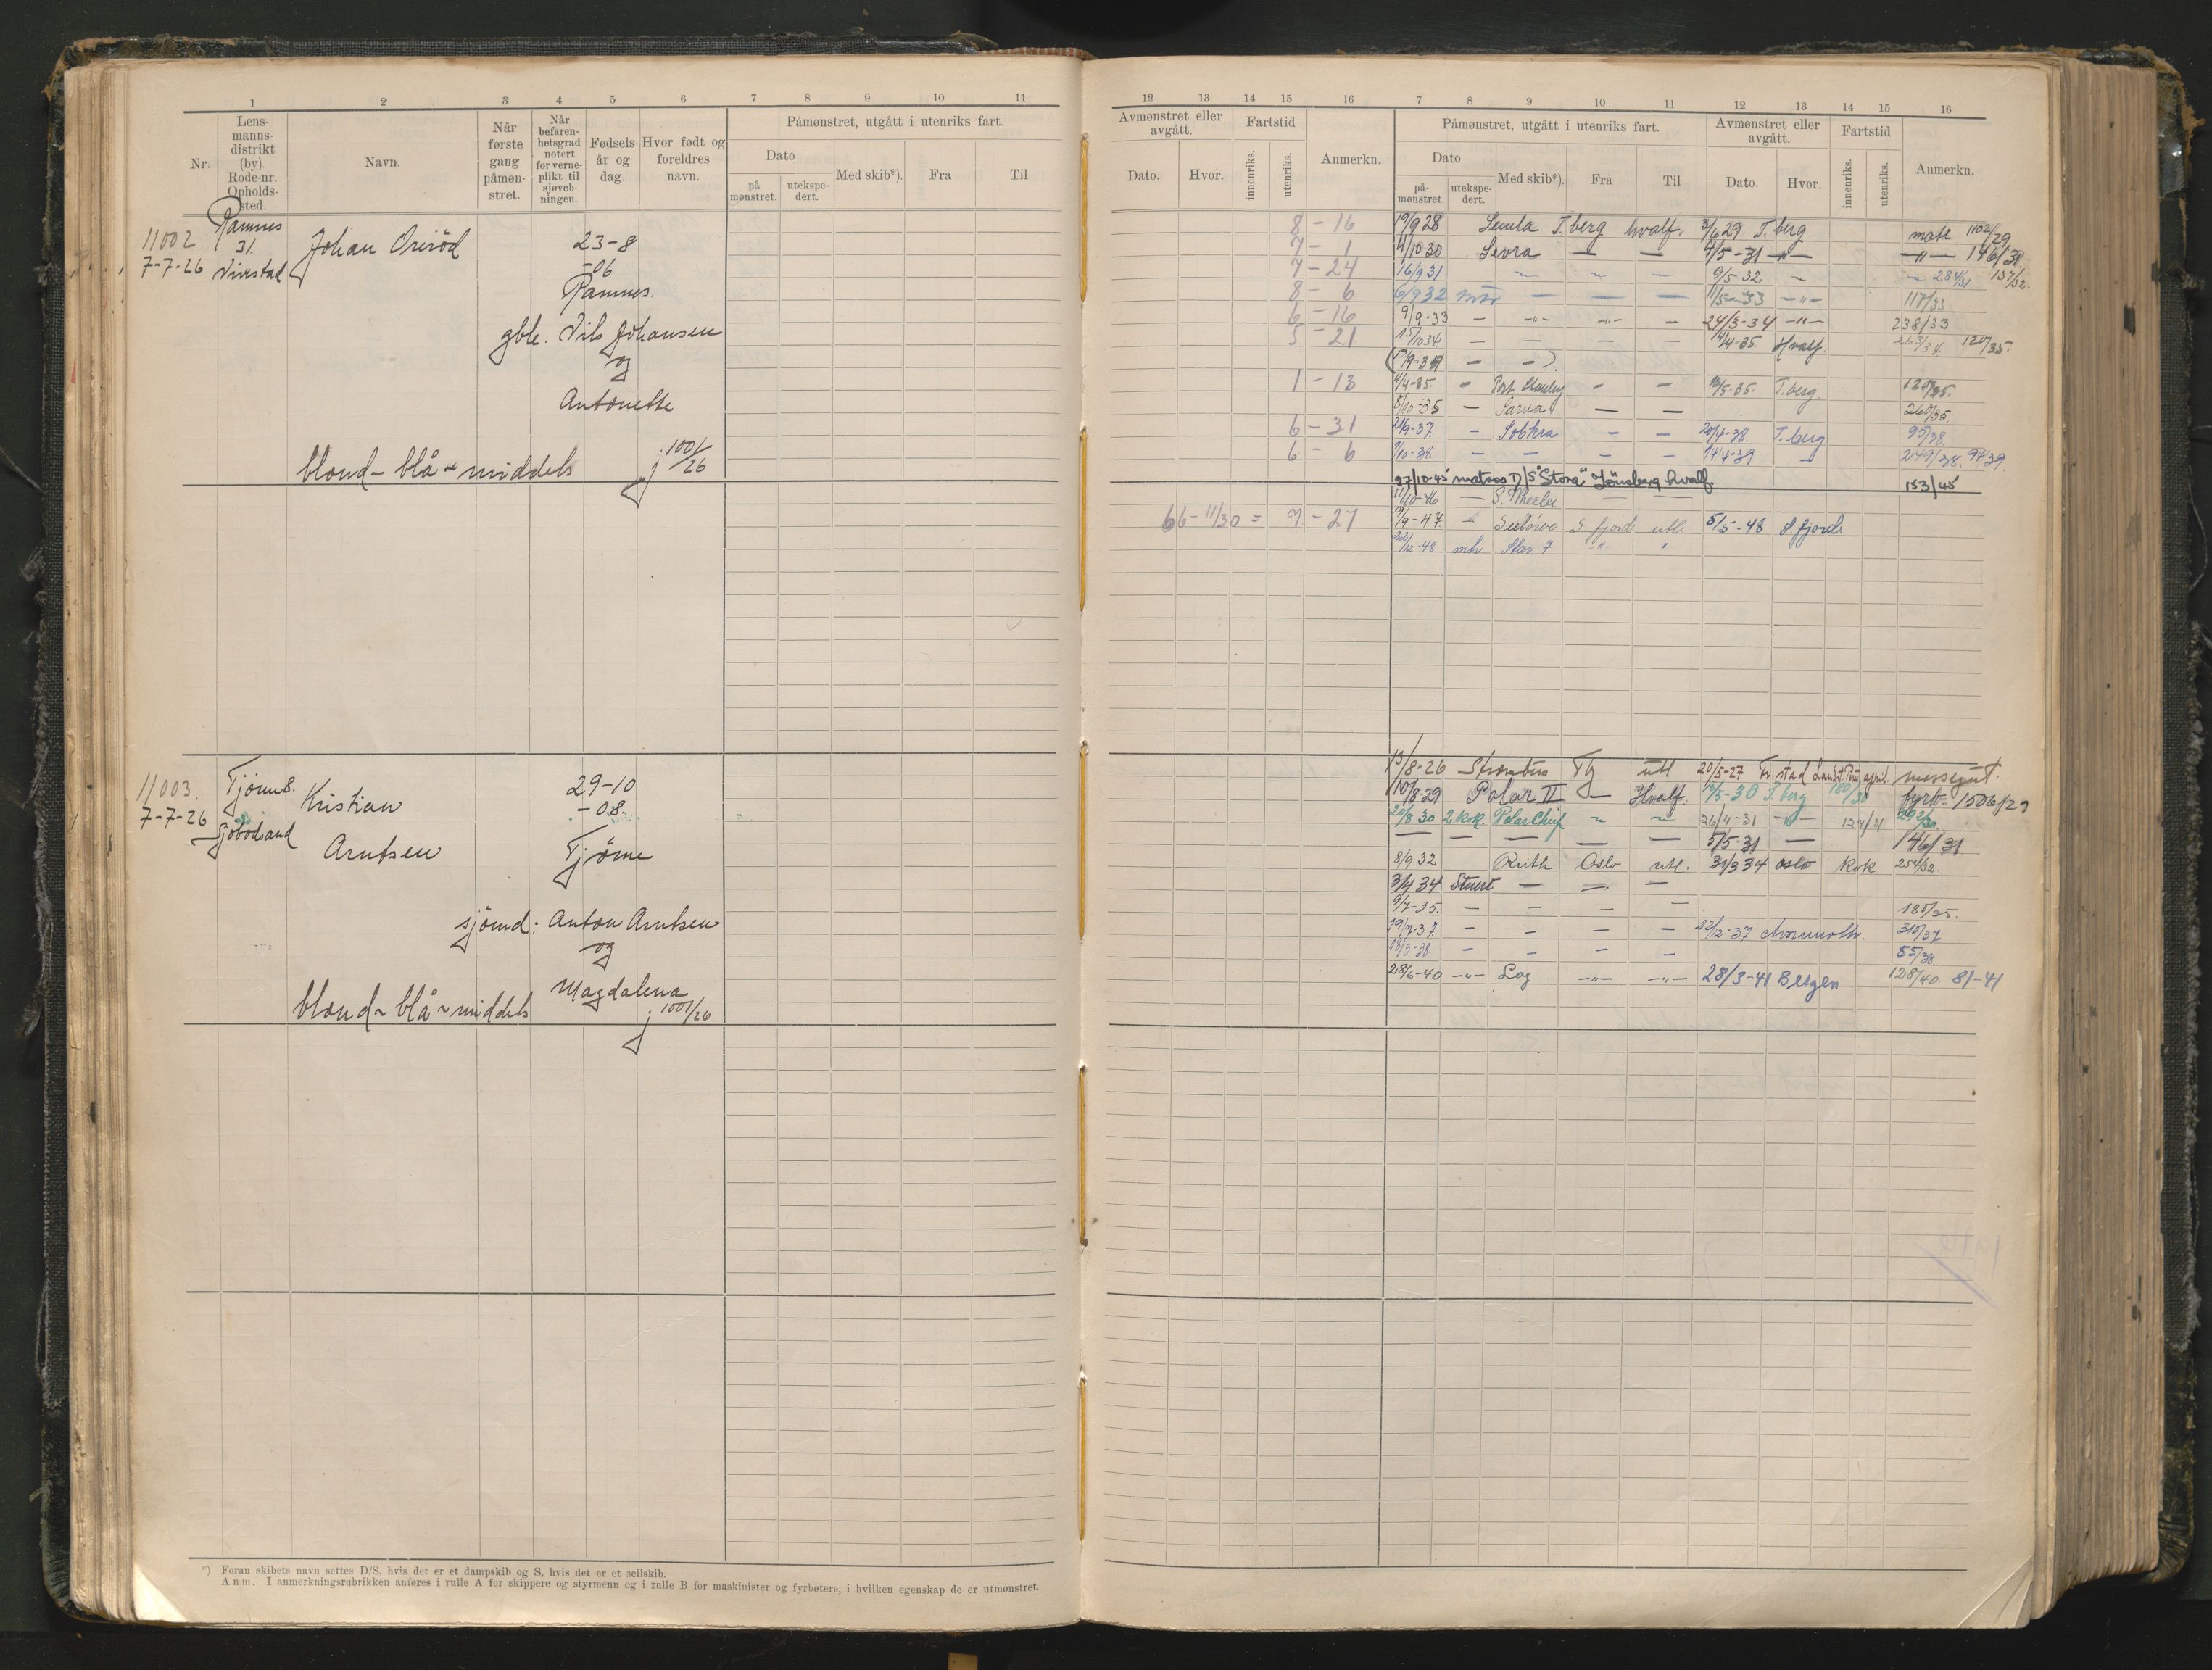 1 2 3 4 5 6 7 8 9 10 11
Nr.
Lens-
manns-
distrikt
(by).
Rode-nr.
Opholds-
sted.
Navn.
Når
første
gang
påmøn-
stret.
Når
befaren-
hetsgrad
notert
for verne-
plikt til
sjøveb-
ningen.
Fødsels-
år og
dag.
Hvor født og
foreldres
navn.
Påmønstret, utgått i utenriks fart.
Dato
på
mønstret.
utekspe-
dert.
Med skib*).
Fra
Til
11002
7-7-26
Ramnes
31.
Johan
23-8
-06
Ramnes.
gbk. Nils Johansen
og
Antonette
blond - blå - middels
j 1001/26
11003.
7-7-26
Tjøme 8.
Sjöbodsand
Kristian
Arntsen
29-10
-08.
Tjøme
sjömd: Anton Arntsen
og
Magdalena
blond - blå - middels
j 1001/26.
*) Foran skibets navn settes D/S, hvis det er et dampskib og S, hvis det er et seilskib.
Anm. I anmerkningsrubrikken anføres i rulle A for skippere og styrmenn og i rulle B for maskinister og fyrbøtere, i hvilken egenskap de er utmønstret.
12 13 14 15 16 7 8 9 10 11 12 13 14 15 16
Avmønstret eller
avgått.
Dato.
Hvor.
Fartstid
innenriks.
utenriks.
Anmerkn.
Påmønstret, utgått i utenriks fart.
Dato
på-
mønstret.
utekspe-
dert.
Med skib*).
Fra
Til
Avmønstret eller
avgått.
Dato.
Hvor.
Fartstid
innenriks.
utenriks.
Anmerkn.
8 - 16 19/9 28 T.berg hvalf. 3/6 29 T.berg 1102/29
7 - 1 4/10 30 Sevra — — 4/5-31 —"— —"— 146/31
7 - 24 16/9 31 9/5-32 284/31 137/32.
8 - 6 6/9 32 — — — 11/5-33 —"— 117/33
6 - 16 9/9-33 — —"— —"— — 24/3-34 —"— 238/33
5 - 21 15/10 34 — — — — 14/4-35 Hvalf. 263/34 120/35.
1 - 13 — — T.berg.
8/10-35 — — — 260/35.
6 - 31 21/9-37 — Solstra — — 20/4-38 T.berg 95/38.
6 - 6 7/10-38 — — — — 14/4-39 — 249/38. 94/39.
27/10-45 matros D/S "Stora" Tönsberg hvalf. 153/45
11/10-46 — S. Wheeler
66 - 11/30 = 7 - 27 9/9-47 S fjord utl 5/5-48 S.fjord.
22/12-48 Star 7 —"— "
13/8-26 Strombus Tbg utl 20/5-27 Fr.stad messegut.
10/8 29 Polar II — Hvalf. 13/5-30 T.berg 180/30 fyrb. 1506/29
20/8 30 2 kok Polar Chief 26/4-31 —"— 127/31 292/30
— — — — — 5/5-31 — 146/31
8/9 32 Ruth Oslo utl. 31/3 34 Oslo kok 254/32.
3/4 34 Stuert — — —
9/7-35. — — — — 185/35.
19/7-37. — — — — 23/12-37 310/37
18/3-38. — — — — 55/38.
28/6-40 —"— Log —"— —"— 28/3-41 Bergen 128/40 81-41